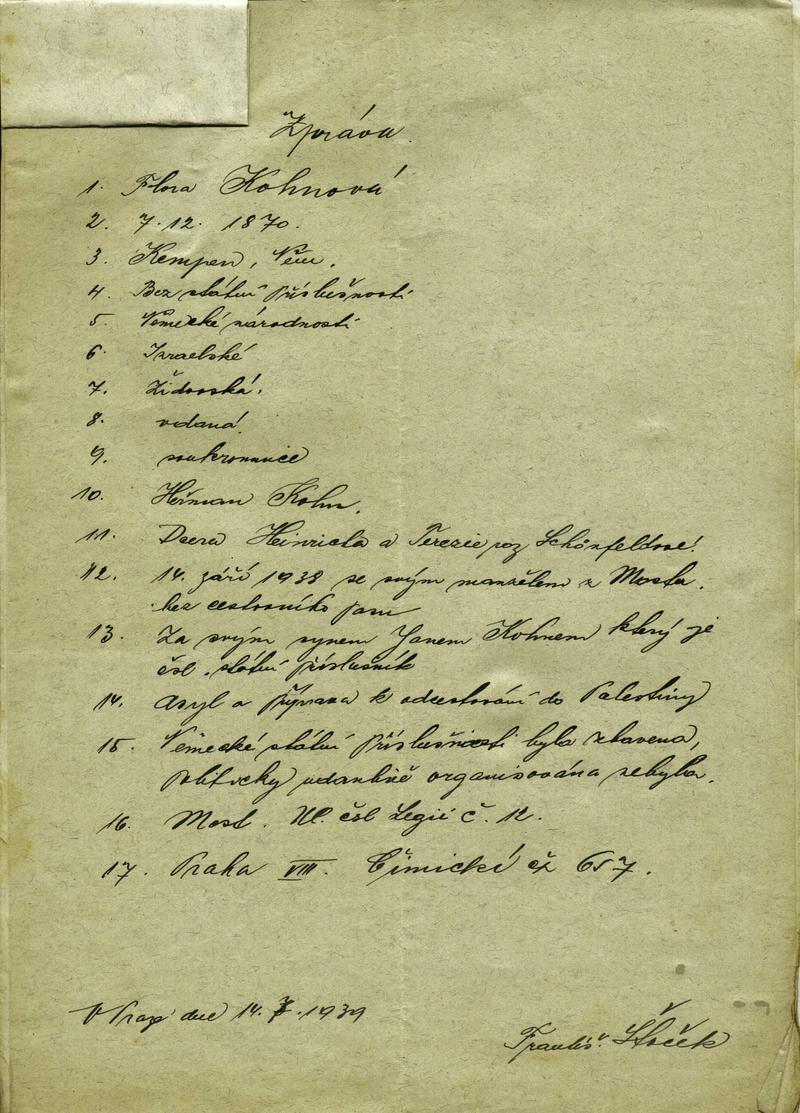 Zpráva.
1. Flora Kohnová
2. 7.12. 1870.
3. Kempen, Něm.
4. Bez státní příslušnosti
5. Německé národnosti
6. Israelské
7. Židovská.
8. vdaná
9. soukromnice
10. Heřman Kohn.
11. Dcera Heinricha a Terezie roz Schönfeldové.
12. 14. září 1938 se svým manželem z Mosta.
bez cestovního pasu
13. Za svým synem Janem Kohnem který je
čsl. státní příslušník
14. Asyl a příprava k odcestování do Palestiny
15. Německé státní příslušnosti byla zbavena,
politicky organisována nebyla.
16. Most. Ul. čsl Legií č. 12.
17. Praha VIII. Čimická čž 657.
V Praze dne 14. 7. 1939
Františ. Štoček